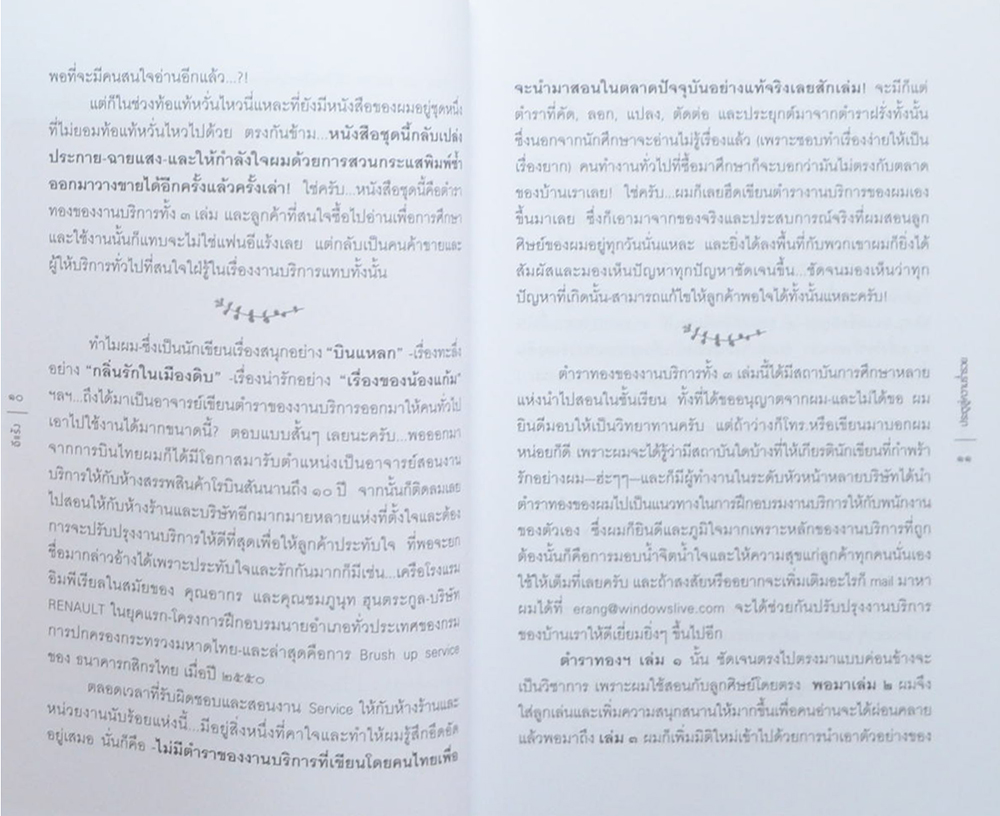 พอที่จะมีคนสนใจอ่านอีกแล้ว...?!
แต่ก็ในช่วงท้อแท้หวั่นไหวนี่แหละที่ยังมีหนังสือของผมอยู่ชุดหนึ่ง
ที่ไม่ยอมท้อแท้หวั่นไหวไปด้วย ตรงกันข้าม...หนังสือชุดนี้กลับเปล่ง
ประกาย-ฉายแสง-และให้กำลังใจผมด้วยการสวนกระแสพิมพ์ซ้ำ
ออกมาวางขายได้อีกครั้งแล้วครั้งเล่า! ใช่ครับ...หนังสือชุดนี้คือตำรา
ทองของงานบริการทั้ง ๓ เล่ม และลูกค้าที่สนใจซื้อไปอ่านเพื่อการศึกษา
และใช้งานนั้นก็แทบจะไม่ใช่แฟนอีแร้งเลย แต่กลับเป็นคนค้าขายและ
ผู้ให้บริการทั่วไปที่สนใจใฝ่รู้ในเรื่องงานบริการแทบทั้งนั้น
ทำไมผม-ซึ่งเป็นนักเขียนเรื่องสนุกอย่าง “บินแหลก” -เรื่องทะลึ่ง
อย่าง “กลิ่นรักในเมืองดิบ” -เรื่องน่ารักอย่าง “เรื่องของน้องแก้ม”
ฯลฯ...ถึงได้มาเป็นอาจารย์เขียนตำราของงานบริการออกมาให้คนทั่วไป
เอาไปใช้งานได้มากขนาดนี้? ตอบแบบสั้นๆ เลยนะครับ...พอออกมา
จากการบินไทยผมก็ได้มีโอกาสมารับตำแหน่งเป็นอาจารย์สอนงาน
บริการให้กับห้างสรรพสินค้าโรบินสันนานถึง ๑๐ ปี จากนั้นก็ติดลมเลย
ไปสอนให้กับห้างร้านและบริษัทอีกมากมายหลายแห่งที่ตั้งใจและต้อง
การจะปรับปรุงงานบริการให้ดีที่สุดเพื่อให้ลูกค้าประทับใจ ที่พอจะยก
ชื่อมากล่าวอ้างได้เพราะประทับใจและรักกันมากก็มีเช่น...เครือโรงแรม
อิมพีเรียลในสมัยของ คุณอากร และคุณชมภูนุท ฮุนตระกูล-บริษัท
RENAULT ในยุคแรก-โครงการฝึกอบรมนายอำเภอทั่วประเทศของกรม
การปกครองกระทรวงมหาดไทย-และล่าสุดคือการ Brush up service
ของ ธนาคารกสิกรไทย เมื่อปี ๒๕๕๐
ตลอดเวลาที่รับผิดชอบและสอนงาน Service ให้กับห้างร้านและ
หน่วยงานนับร้อยแห่งนี้...มีอยู่สิ่งหนึ่งที่คาใจและทำให้ผมรู้สึกอึดอัด
อยู่เสมอ นั่นก็คือ -ไม่มีตำราของงานบริการที่เขียนโดยคนไทยเพื่อ
๑๐
อีแร้ง
จะนำมาสอนในตลาดปัจจุบันอย่างแท้จริงเลยสักเล่ม! จะมีก็แต่
ตำราที่คัด, ลอก, แปลง, ตัดต่อ และประยุกต์มาจากตำราฝรั่งทั้งนั้น
ซึ่งนอกจากนักศึกษาจะอ่านไม่รู้เรื่องแล้ว (เพราะชอบทำเรื่องง่ายให้เป็น
เรื่องยาก) คนทำงานทั่วที่ซื้อมาศึกษาก็จะบอกว่ามันไม่ตรงกับตลาด
ของบ้านเราเลย! ใช่ครับ...ผมก็เลยฮึดเขียนตำรางานบริการของผมเอง
ขึ้นมาเลย ซึ่งก็เอามาจากของจริงและประสบการณ์จริงที่ผมสอนลูก
ศิษย์ของผมอยู่ทุกวันนั่นแหละ และยิ่งได้ลงพื้นที่กับพวกเขาผมก็ยิ่งได้
สัมผัสและมองเห็นปัญหาทุกปัญหาชัดเจนขึ้น...ชัดจนมองเห็นว่าทุก
ปัญหาที่เกิดนั้น-สามารถแก้ไขให้ลูกค้าพอใจได้ทั้งนั้นแหละครับ!
ตำราทองของงานบริการทั้ง ๓ เล่มนี้ได้มีสถาบันการศึกษาหลาย
แห่งนำไปสอนในชั้นเรียน ทั้งที่ได้ขออนุญาตจากผม-และไม่ได้ขอ ผม
ยินดีมอบให้เป็นวิทยาทานครับ แต่ถ้าว่างก็โทร.หรือเขียนมาบอกผม
หน่อยก็ดี เพราะผมจะได้รู้ว่ามีสถาบันใดบ้างที่ให้เกียรตินักเขียนที่กำพร้า
รักอย่างผม—ฮ่ะๆๆ—และก็มีผู้ทำงานในระดับหัวหน้าหลายบริษัทได้นำ
ตำราทองของผมไปเป็นแนวทางในการฝึกอบรมงานบริการให้กับพนักงาน
ของตัวเอง ซึ่งผมก็ยินดีและภูมิใจมากเพราะหลักของงานบริการที่ถูก
ต้องนั้นก็คือการมอบน้ำจิตน้ำใจและให้ความสุขแก่ลูกค้าทุกคนนั่นเอง
ใช้ให้เต็มที่เลยครับ และถ้าสงสัยหรืออยากจะเพิ่มเติมอะไรก็ mail มาหา
ผมได้ที่ erang@windowslive.com จะได้ช่วยกันปรับปรุงงานบริการ
ของบ้านเราให้ดีเยี่ยมยิ่งๆ ขึ้นไปอีก
ตำราทองฯ เล่ม ๑ นั้น ชัดเจนตรงไปตรงมาแบบค่อนข้างจะ
เป็นวิชาการ เพราะผมใช้สอนกับลูกศิษย์โดยตรง พอมาเล่ม ๒ ผมจึง
ใส่ลูกเล่นและเพิ่มความสนุกสนานให้มากขึ้นเพื่อคนอ่านจะได้ผ่อนคลาย
แล้วพอมาถึง เล่ม ๓ ผมก็เพิ่มมิติใหม่เข้าไปด้วยการนำเอาตัวอย่างของ
ประตูสู่ความร่ำรวย
๑๑